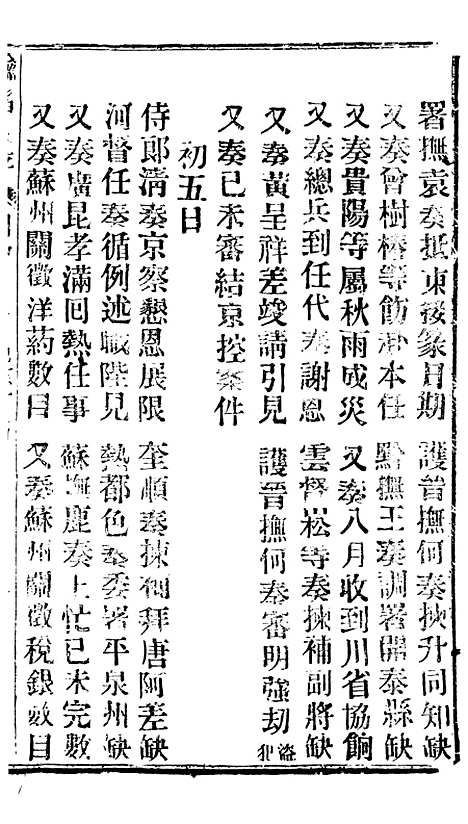 署撫袁奏抵東後篆日期　護晉撫何奏揀升同知缺
又奏曾樹椿等飭赴本任　黔撫王奏調署開泰縣缺
又奏貴陽等屬秋雨成災　又奏八月收到川省協餉
又奏總兵到任代奏謝恩　雲督崧等奏揀補副將缺
又奏黃呈祥差竣請引見　護晉撫何奏審明強劫盜犯
又奏已未審結京控案件
初五日
侍郎清奏京察懇恩展限　奎順奏揀補拜唐阿差缺
河督任奏循例述職陛見　熱都色奏委署平泉州缺
又奏廣昆孝滿回熱任事　蘇撫鹿奏上忙已未完數
又奏蘇州關徵洋葯數目　又奏蘇州關徵稅銀數目